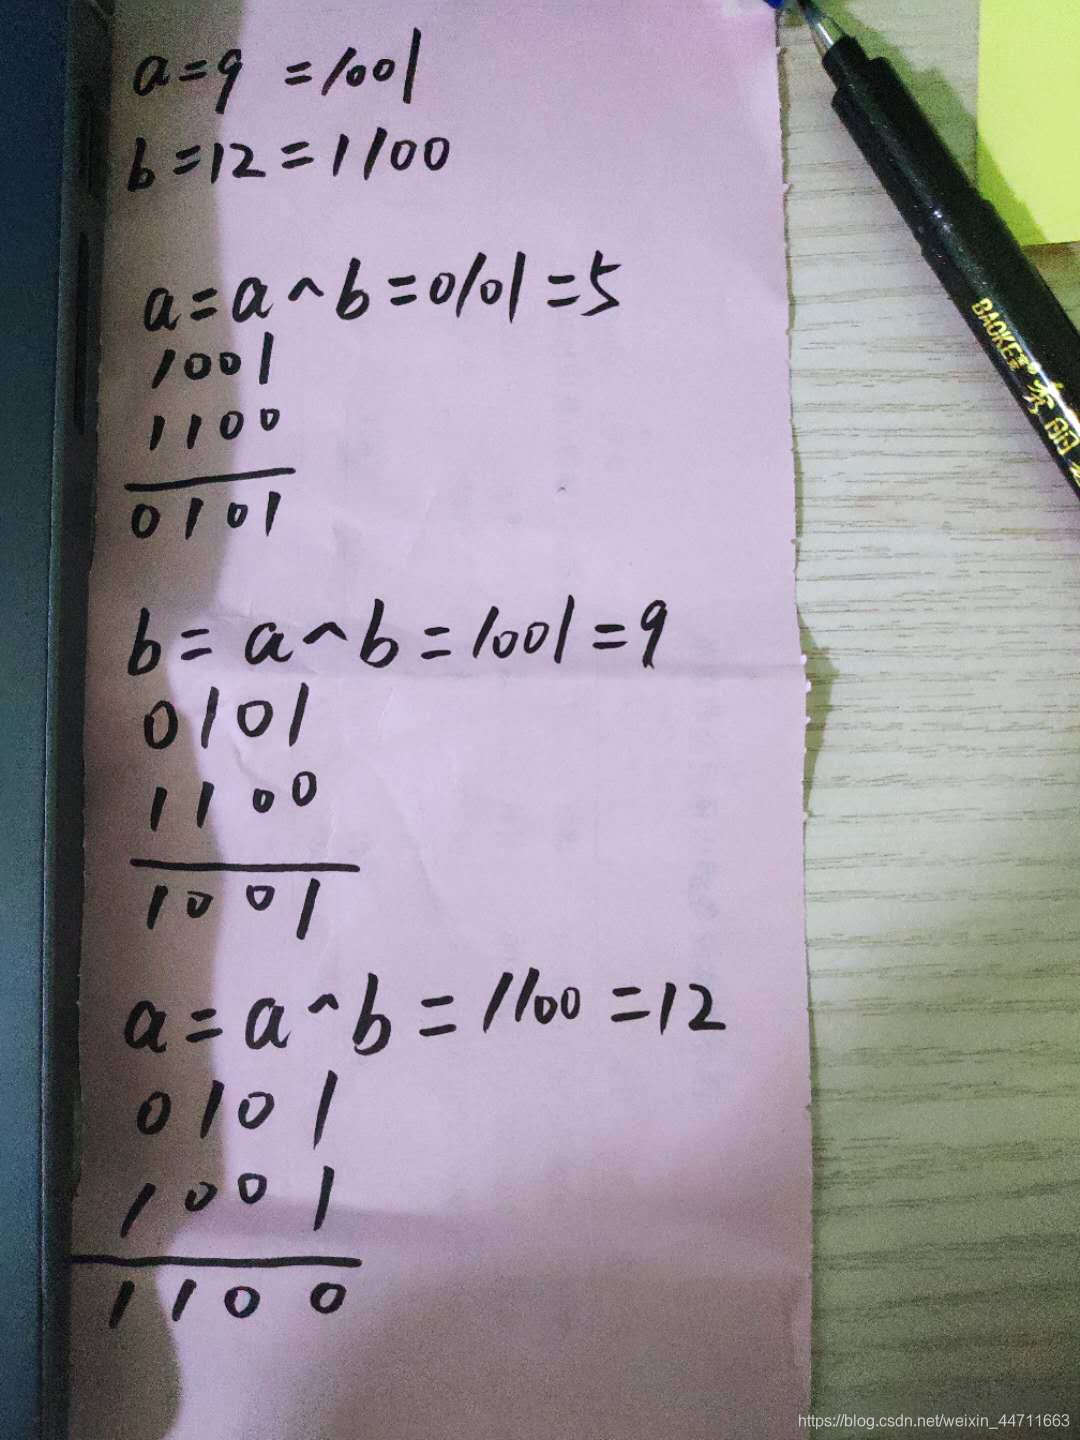 a=9 =1001
b=12=1100
a=a^b=0101=5
1001
1100
0101
b=a^b=1001=9
0101
1100
1001
a=a^b=1100=12
0101
1001
1100
BAOKE
https://blog.csdn.net/weixin_44711663